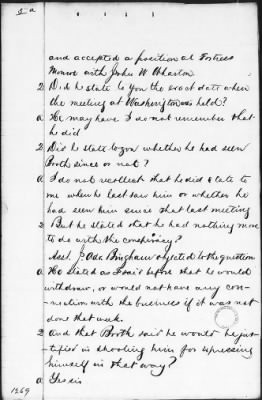 and accepted a position at Fortress
Monroe with John W Wharton
Q Did he state to you the exact date when
the meeting at Washington was held?
A He may have I do not remember that
he did
Q Did he state to you whether he had seen
Booth since or not?
A I do not recollect that he did state to
me when he last saw him or whether he
had seen him since that last meeting
Q But he stated that he had nothing more
to do with the conspiracy?
Asst J Adv Bingham objected to the question
A He stated as I said before that he would
withdraw, or would not have any con-
nection with the business if it was not
done that week.
Q And that Booth said he would be jus-
tified in shooting him for expressing
himself in that way?
A Yes sir
1269